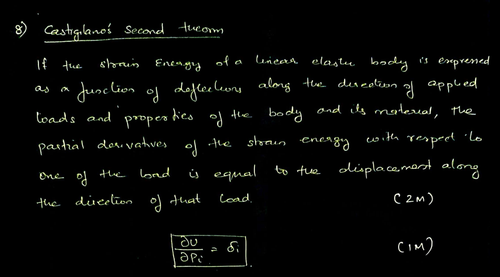 8) Castigilano's second theorem
If the strain Energy of a linear elastic body is expressed
as a function of deflections along the direction of applied
loads and properties of the body and its material, the
partial derivatives of the strain energy with respect to
one of the load is equal to the displacement along
the direction of that load. (2M)
∂U/∂Pi = δi (1M)